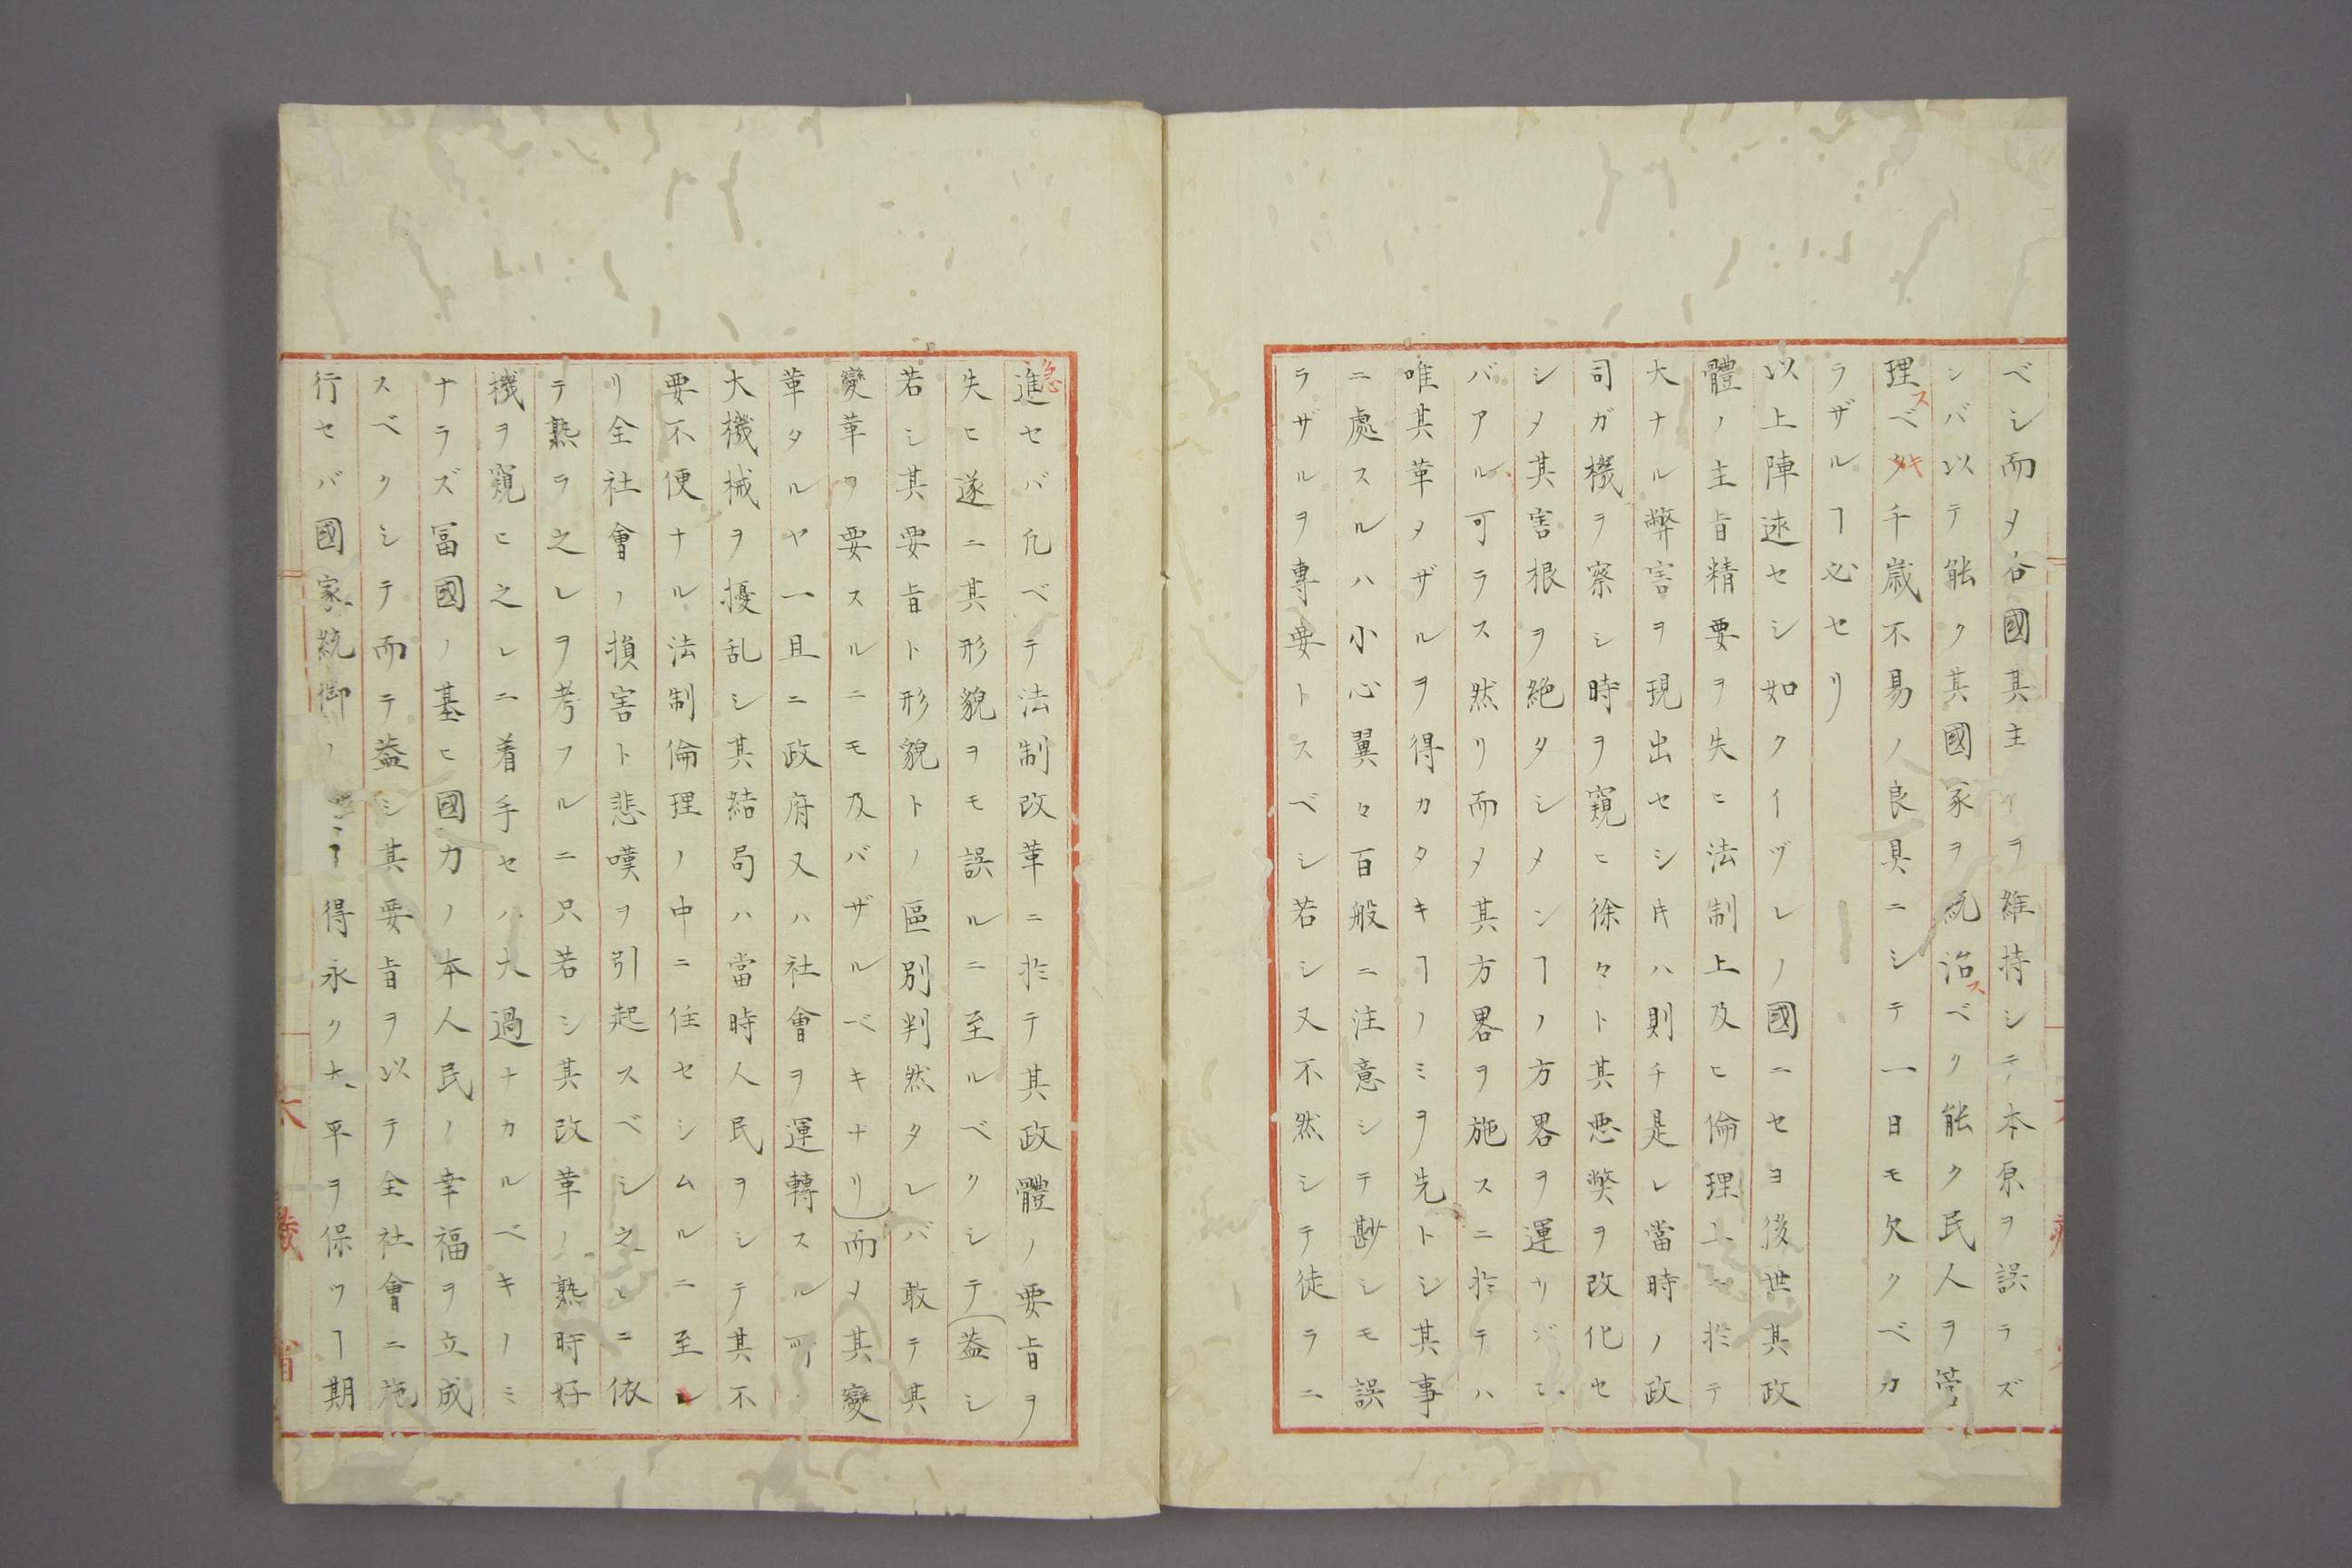 ベシ而メ各國其主 ヲ維持シテ本原ヲ誤ラズ
シバ以テ能ク其國家ヲ統治スベク能ク民人ヲ管
理スベキ千歳不易ノ良具ニシテ一日モ欠クベカ
ラザルヿ必セリ
以上陣述セシ如クイヅレノ國ニセヨ後世其政
體ノ主旨精要ヲ失ヒ法制上及ヒ倫理上ニ於テ
大ナル弊害ヲ現出セシキハ則チ是レ當時ノ政
司ガ機ヲ察シ時ヲ窺ヒ徐々ト其悪弊ヲ改化セ
シメ其害根ヲ絶タシメンヿノ方畧ヲ運サヾレ
バアル可ラス然リ而メ其方畧ヲ施スニ於テハ
唯其革メザルヲ得カタキヿノミヲ先トシ其事
ニ處スルハ小心翼々百般ニ注意シテ尠シモ誤
ラザルヲ專要トスベシ若シ又不然シテ徒ラニ
急進セバ凢ベテ法制改革ニ於テ其政體ノ要旨ヲ
失ヒ遂ニ其形貌ヲモ誤ルニ至ルベクシテ葢シ
若シ其要旨ト形貌トノ區別判然タレバ敢テ其
變革ヲ要スルニモ及バザルベキナリ而メ其變
革タルヤ一旦ニ政府又ハ社會ヲ運轉スル所ノ
大機械ヲ擾乱シ其結局ハ當時人民ヲシテ其不
要不便ナル法制倫理ノ中ニ住セシムルニ至レ
リ全社會ノ損害ト悲嘆ヲ引起スベシ之ヒニ依
テ熟ラ之レヲ考フルニ只若シ其改革ノ熟時好
機ヲ窺ヒ之レニ着手セハ大過ナカルベキノミ
ナラズ冨國ノ基ヒ國力ノ本人民ノ幸福ヲ立成
スベクシテ而テ葢シ其要旨ヲ以テ全社會ニ施
行セバ國家統御ノ 得永ク大平ヲ保ツヿ期